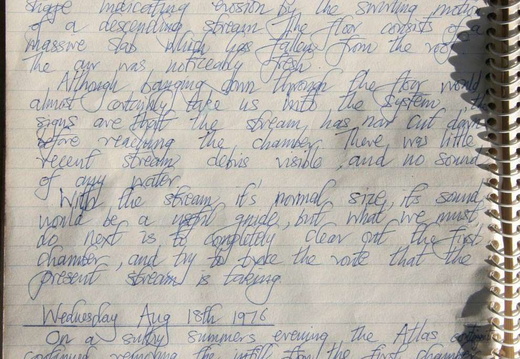 stage indicating erosion by the swirling motion
of a descending stream. The floor consists of a
massive slab which has fallen from the roof
the air was noticeably fresh.
Although banging down through the floor would
almost certainly take us into the system, all
signs are that the stream has now cut down
before reaching the chamber. There was little
recent stream debris visible, and no sound
of any water.
With the stream it's normal size, its sound
would be a useful guide, but what we must
do next is to completely clear out the first
chamber, and try to trace the route that the
present stream is taking
Wednesday Aug 18th 1976
On a sultry summers evening the Atlas
continued removing the infill from the first chamber